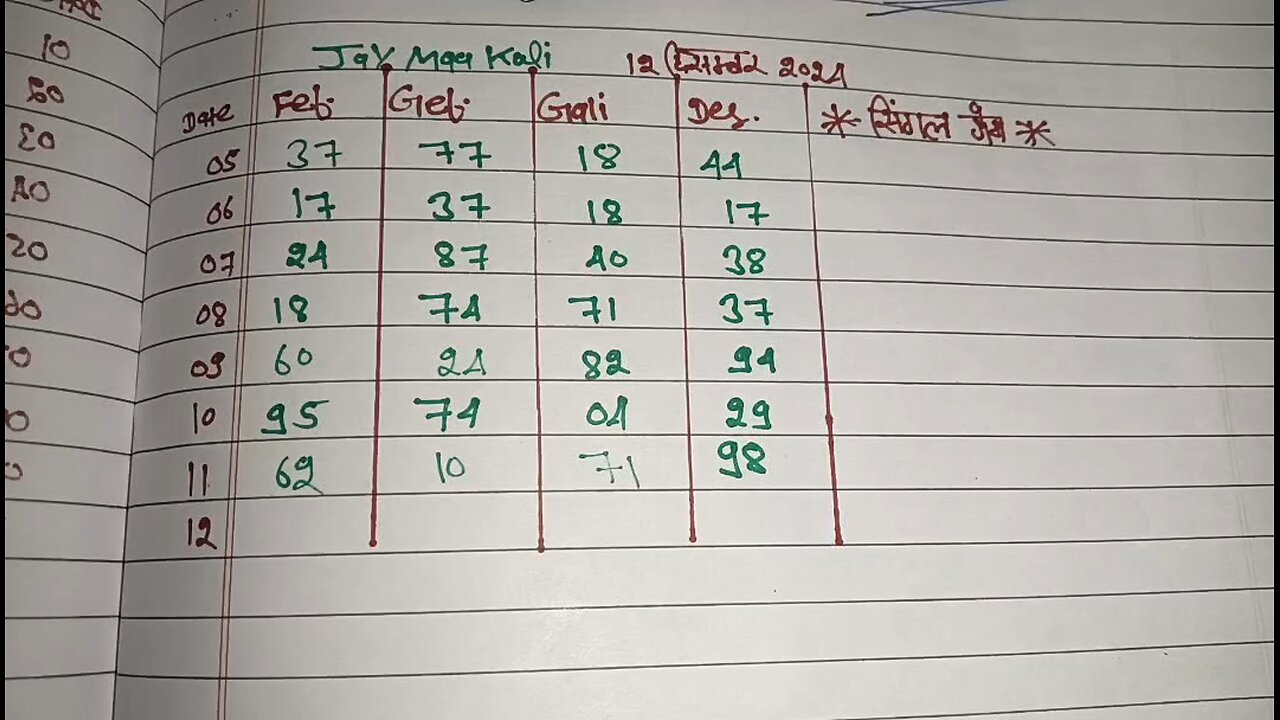 10
80
Jay Maa Kali 12 दिसम्बर 2024
Date Feb. Geb. Gali Des. * सिंगल जैब *
05 37 77 18 44
06 17 37 18 17
07 24 87 40 38
08 18 74 71 37
09 60 24 82 94
10 95 74 04 29
11 62 10 71 98
12